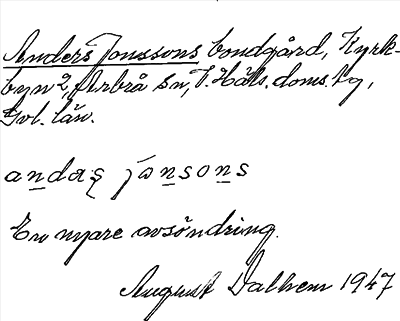 Anders Jonssons bondgård, Kyrk-
byn 2, Arbrå sn, V. Häls. doms. tg,
Gvl. län.
andaʂ jɷnsons
En nyare avsöndring.
August Dalhem 1947